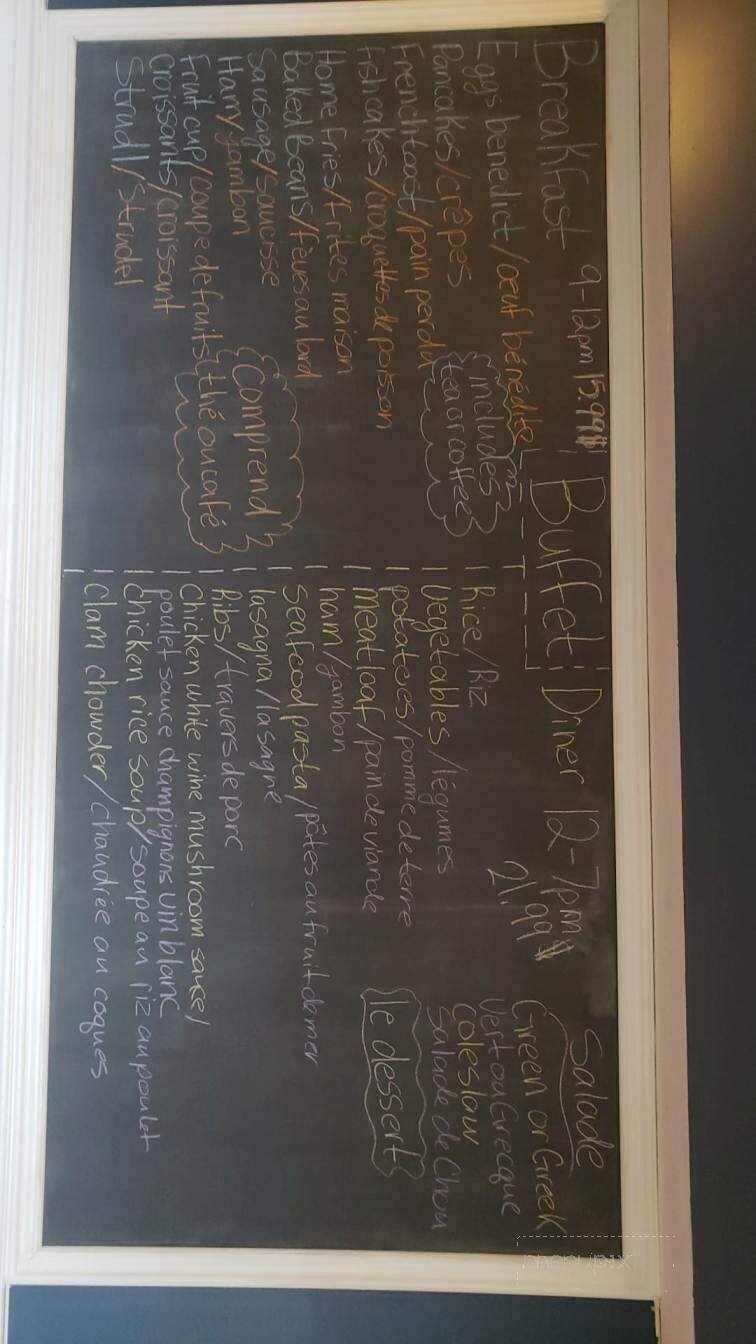 Breakfast 9-12pm 15.99$
Buffet
Eggs benedict/oeuf bénédicte
Pancakes/crêpes
French toast/pain perdu
Fishcakes/croquettes de poisson
Home fries/frites maison
Baked Beans/fèves au lard
Sausage/saucisse
Ham/jambon
Fruit cup/coupe de fruits
Croissants/croissant
Strudl/strudel
includes
tea or coffee
Comprend
thé ou café
Dîner 12-7pm
21.99$
Rice/Riz
Vegetables/légumes
potatoes/pomme de terre
meatloaf/pain de viande
ham/jambon
seafood pasta/pâtes au fruit de mer
lasagna/lasagne
Ribs/travers de porc
Chicken white wine mushroom sauce/
poulet sauce champignons vin blanc
chicken rice soup/soupe au riz au poulet
clam chowder/chaudrée au coques
Salade
Green or Greek
Vert ou Grecque
Coleslaw
Salade de Chou
le dessert
menupix